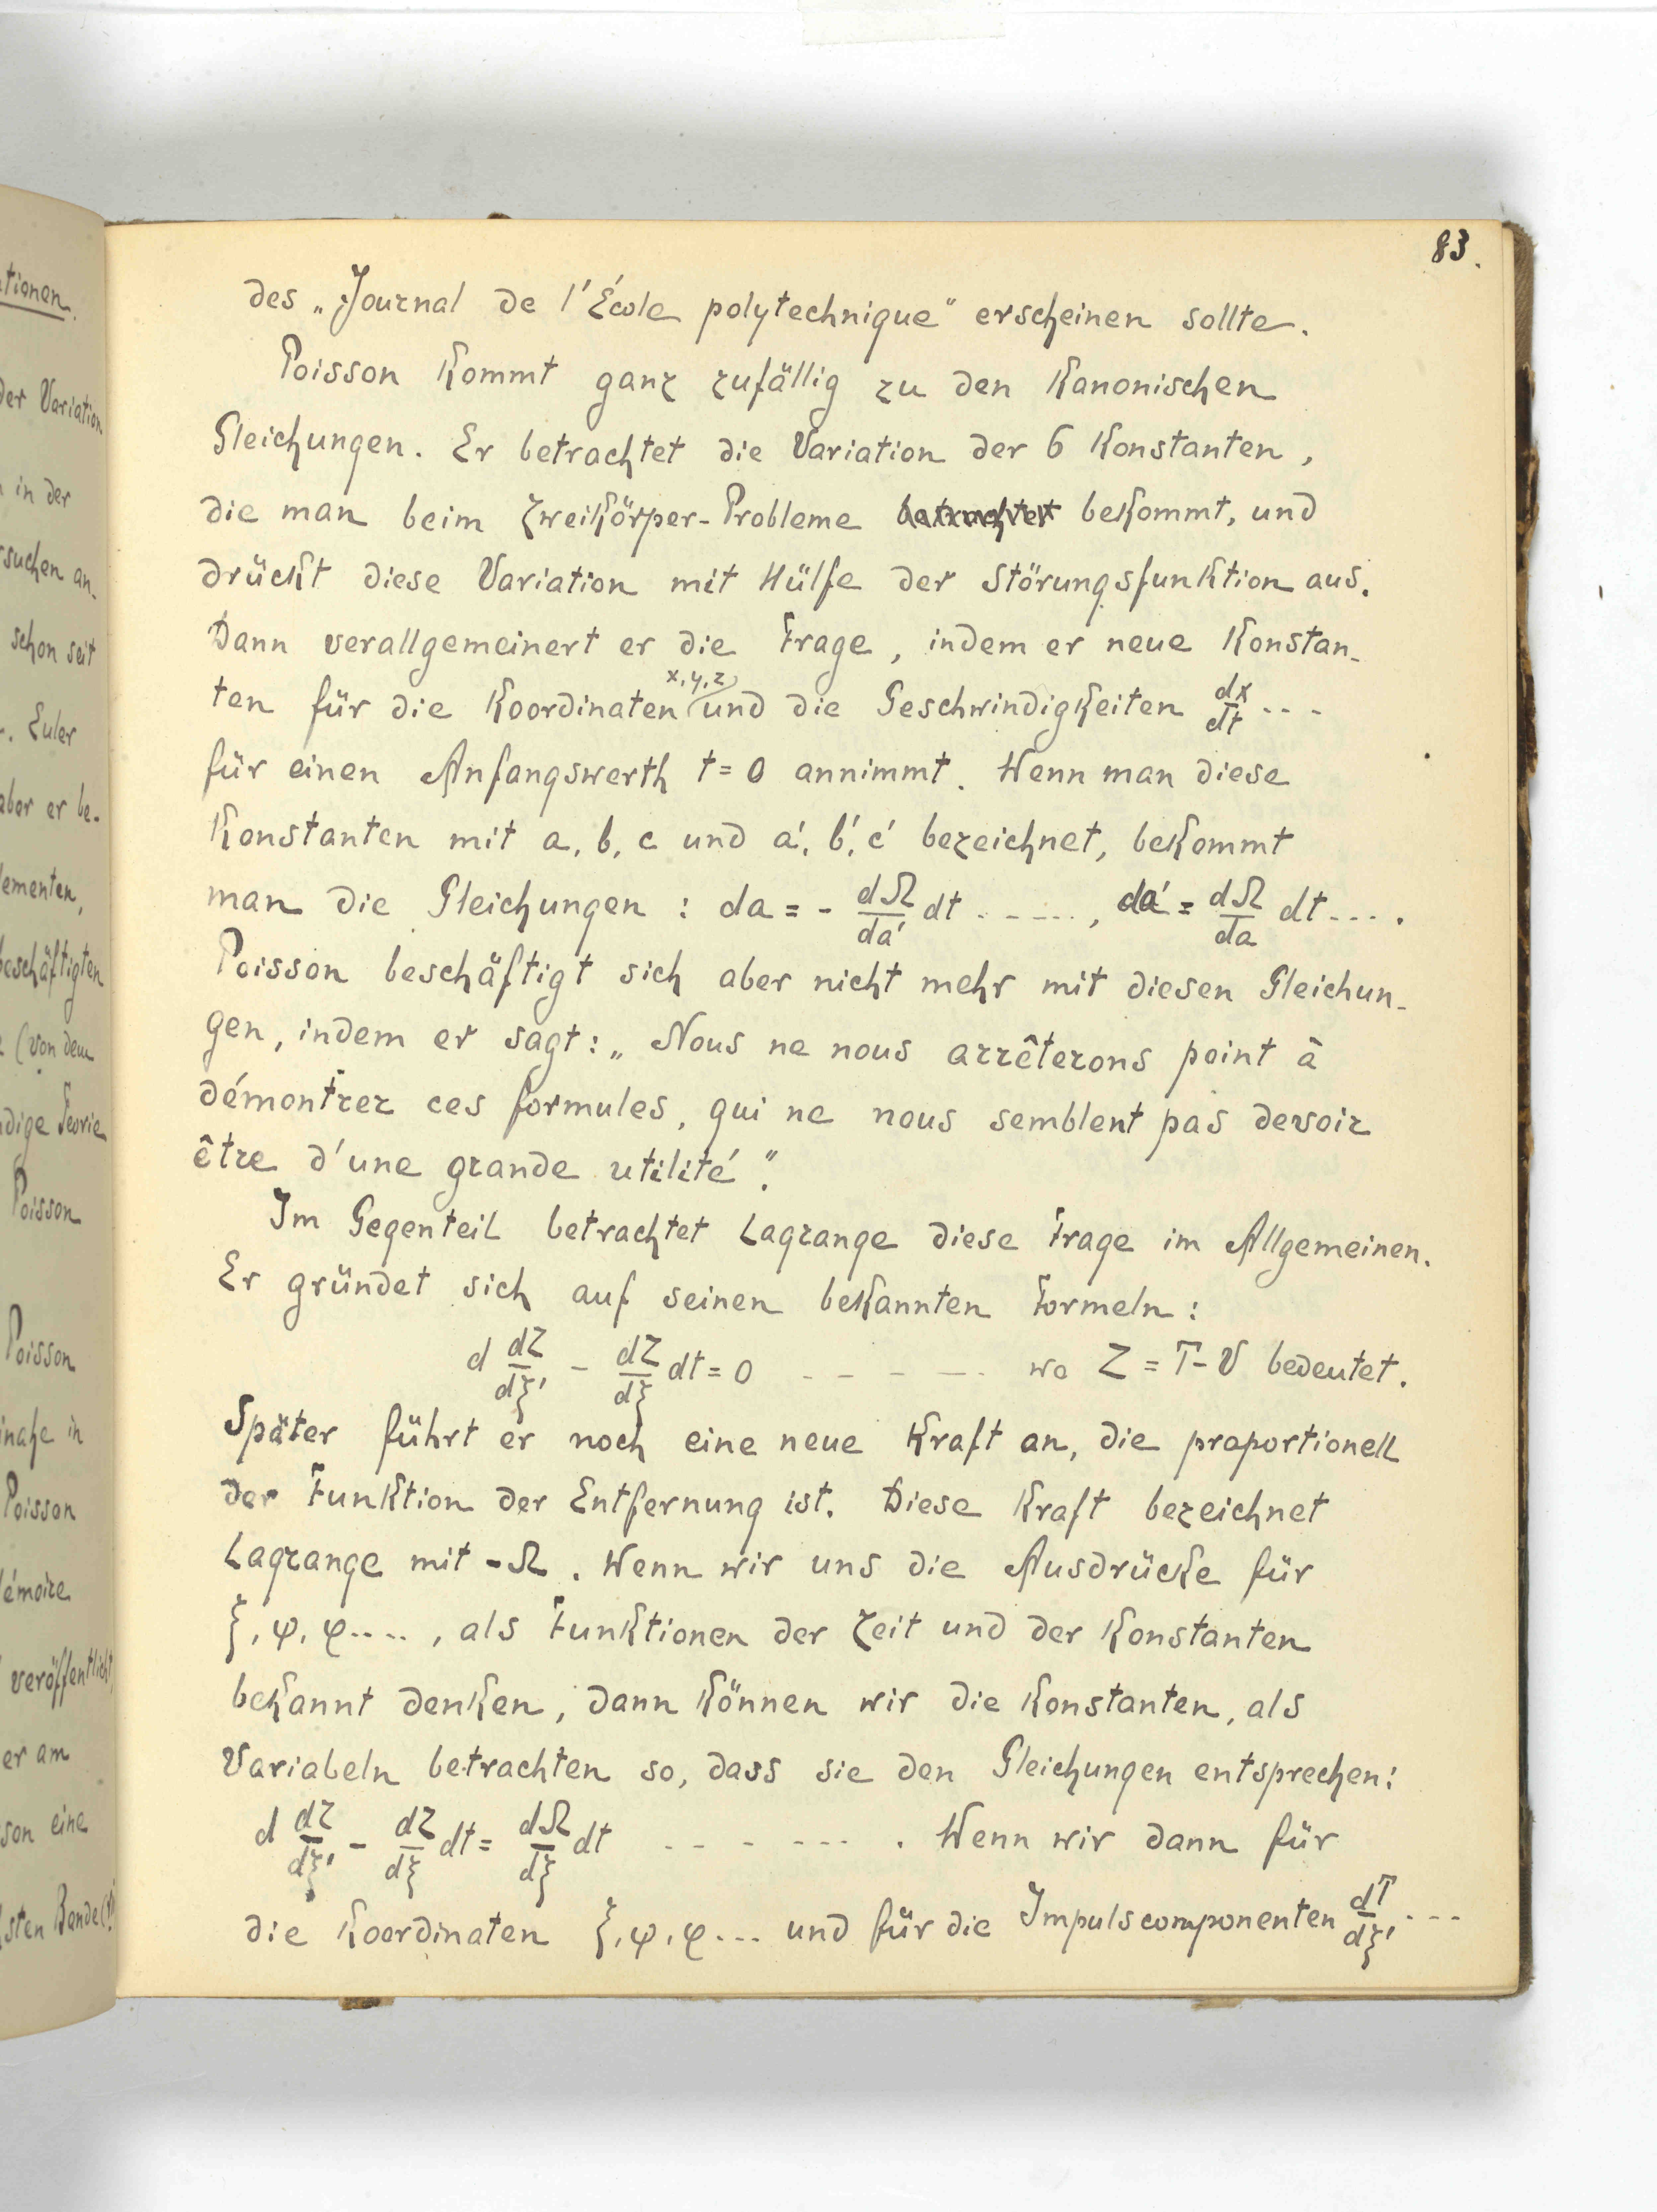 83.
des „Journal de l'École polytechnique" erscheinen sollte.
Poisson kommt ganz zufällig zu den kanonischen
Gleichungen. Er betrachtet die Variation der 6 Konstanten,
die man beim Zweikörper-Probleme betrachtet bekommt, und
drückt diese Variation mit Hülfe der Störungsfunktion aus.
Dann verallgemeinert er die Frage, indem er neue Konstan-
ten für die Koordinaten x, y, z und die Geschwindigkeiten dx/dt ...
für einen Anfangswerth t = 0 annimmt. Wenn man diese
Konstanten mit a, b, c und a', b', c' bezeichnet, bekommt
man die Gleichungen : da = - dΩ/da' dt ......, da' = dΩ/da dt ....
Poisson beschäftigt sich aber nicht mehr mit diesen Gleichun-
gen, indem er sagt: „Nous ne nous arrêterons point à
démontrer ces formules, qui ne nous semblent pas devoir
être d'une grande utilité".
Im Gegenteil betrachtet Lagrange diese Frage im Allgemeinen.
Er gründet sich auf seinen bekannten Formeln :
d dZ/dξ' - dZ/dξ dt = 0 - - - - - wo Z = T - V bedeutet.
Später führt er noch eine neue Kraft an, die proportionell
der Funktion der Entfernung ist. Diese Kraft bezeichnet
Lagrange mit -Ω. Wenn wir uns die Ausdrücke für
ξ, ψ, φ...., als Funktionen der Zeit und der Konstanten
bekannt denken, dann können wir die Konstanten, als
Variabeln betrachten so, dass sie den Gleichungen entsprechen:
d dZ/dξ' - dZ/dξ dt = dΩ/dξ dt - - - - - - . Wenn wir dann für
die Koordinaten ξ, ψ, φ ... und für die Impulscomponenten dT/dξ' ...